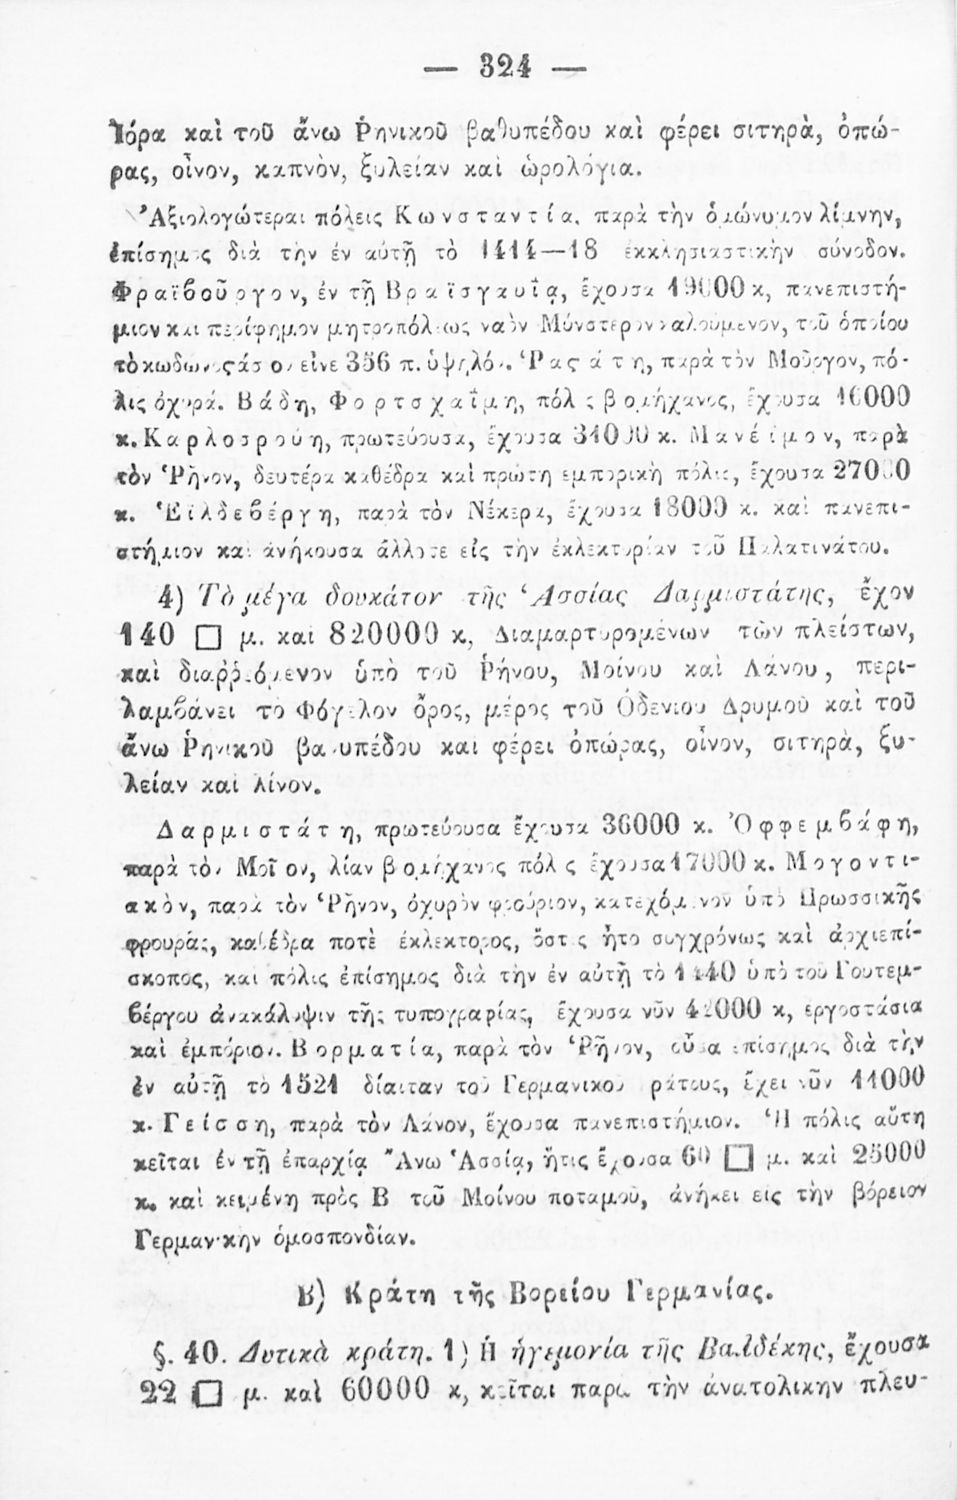 — 324 —
Ἰόρα καὶ τοῦ ἄνω Ῥηνικοῦ βαθυπέδου καὶ φέρει σιτηρὰ, ὀπώ-
ρας, οἶνον, καπνὸν, ξυλείαν καὶ ὡρολόγια.
Ἀξιολογώτεραι πόλεις Κωνσταντία, παρὰ τὴν ὁμώνυμον λίμνην,
ἐπίσημος διὰ τὴν ἐν αὐτῇ τὸ 1414—18 ἐκκλησιαστικὴν σύνοδον.
Φραϊβοῦργον, ἐν τῇ Βραϊσγαυΐᾳ, ἔχουσα 19000 κ, πανεπιστή-
μιον καὶ περίφημον μητροπόλεως ναὸν Μύνστερον καλούμενον, τοῦ ὁποίου
τὸ κωδωνοστάσιον εἶνε 356 π. ὑψηλόν. Ῥαστάτη, παρὰ τὸν Μοῦργον, πό-
λις ὀχυρά. Βάδη, Φορτσχαΐμη, πόλις βιομήχανος, ἔχουσα 16000
κ. Καρλοσρούη, πρωτεύουσα, ἔχουσα 31000 κ. Μανέϊμον, παρὰ
τὸν Ῥῆνον, δευτέρα καθέδρα καὶ πρώτη εμπορικὴ πόλις, ἔχουσα 27000
κ. Ἑϊλδεβέργη, παρὰ τὸν Νέκερα, ἔχουσα 18000 κ. καὶ πανεπι-
στήμιον καὶ ἀνήκουσα ἄλλοτε εἰς τὴν ἐκλεκτορίαν τοῦ Παλατινάτου.
4) Τὸ μέγα δουκάτον τῆς Ἁσσίας Δαρμιστάτης, ἔχον
140 □ μ. καὶ 820000 κ, Διαμαρτυρομένων τῶν πλείστων,
καὶ διαῤῥεόμενον ὑπὸ τοῦ Ῥήνου, Μοίνου καὶ Λάνου, περι-
λαμβάνει τὸ Φόγελον ὄρος, μέρος τοῦ Ὀδενίου Δρυμοῦ καὶ τοῦ
ἄνω Ῥηνικοῦ βαθυπέδου καὶ φέρει ὀπώρας, οἶνον, σιτηρὰ, ξυ-
λείαν καὶ λίνον.
Δαρμιστάτη, πρωτεύουσα ἔχουσα 36000 κ. Ὀφφεμβάφη,
παρὰ τὸν Μοῖνον, λίαν βιομήχανος πόλις ἔχουσα 17000 κ. Μογοντι-
ακὸν, παρὰ τὸν Ῥῆνον, ὀχυρὸν φρούριον, κατεχόμενον ὑπὸ Πρωσσικῆς
φρουρᾶς, καθέδρα ποτὲ ἐκλέκτορος, ὅστις ἦτο συγχρόνως καὶ ἀρχιεπί-
σκοπος, καὶ πόλις ἐπίσημος διὰ τὴν ἐν αὐτῇ τὸ 1440 ὑπὸ τοῦ Γουτεμ-
βέργου ἀνακάλυψιν τῆς τυπογραφίας, ἔχουσα νῦν 42000 κ, εργοστάσια
καὶ ἐμπόριον. Βορματία, παρὰ τὸν Ῥῆνον, οὖσα ἐπίσημος διὰ τὴν
ἐν αὐτῇ τὸ 1521 δίαιταν τοῦ Γερμανικοῦ κράτους, ἔχει νῦν 11000
κ. Γείσση, παρὰ τὸν Λάνον, ἔχουσα πανεπιστήμιον. Ἡ πόλις αὕτη
κεῖται ἐν τῇ ἐπαρχίᾳ Ἄνω Ἁσσίᾳ, ἥτις ἔχουσα 60 □ μ. καὶ 25000
κ. καὶ κειμένη πρὸς Β τοῦ Μοίνου ποταμοῦ, ἀνήκει εἰς τὴν βόρειον
Γερμανικὴν ὁμοσπονδίαν.
Β) Κράτη τῆς Βορείου Γερμανίας.
§. 40. Δυτικὰ κράτη. 1) Ἡ ἡγεμονία τῆς Βαλδέκης, ἔχουσα
22 □ μ. καὶ 60000 κ, κεῖται παρὰ τὴν ἀνατολικὴν πλευ-